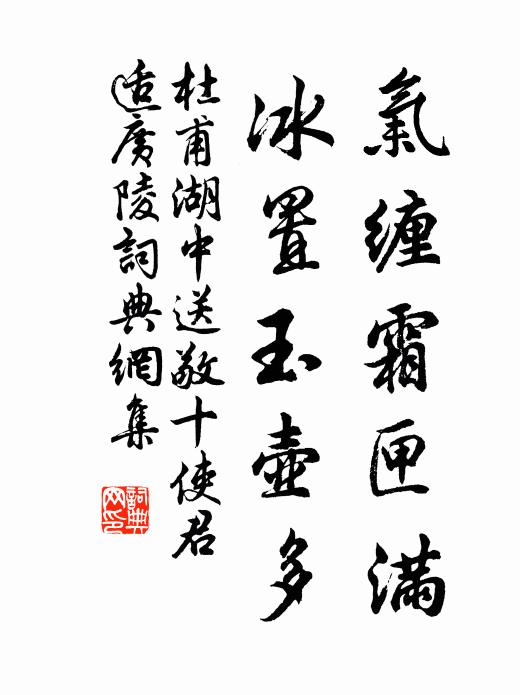 氣纏霜匣滿
冰置玉壺多
杜甫湖中送敬十使君
適廣陵詞典網集
詞典網印